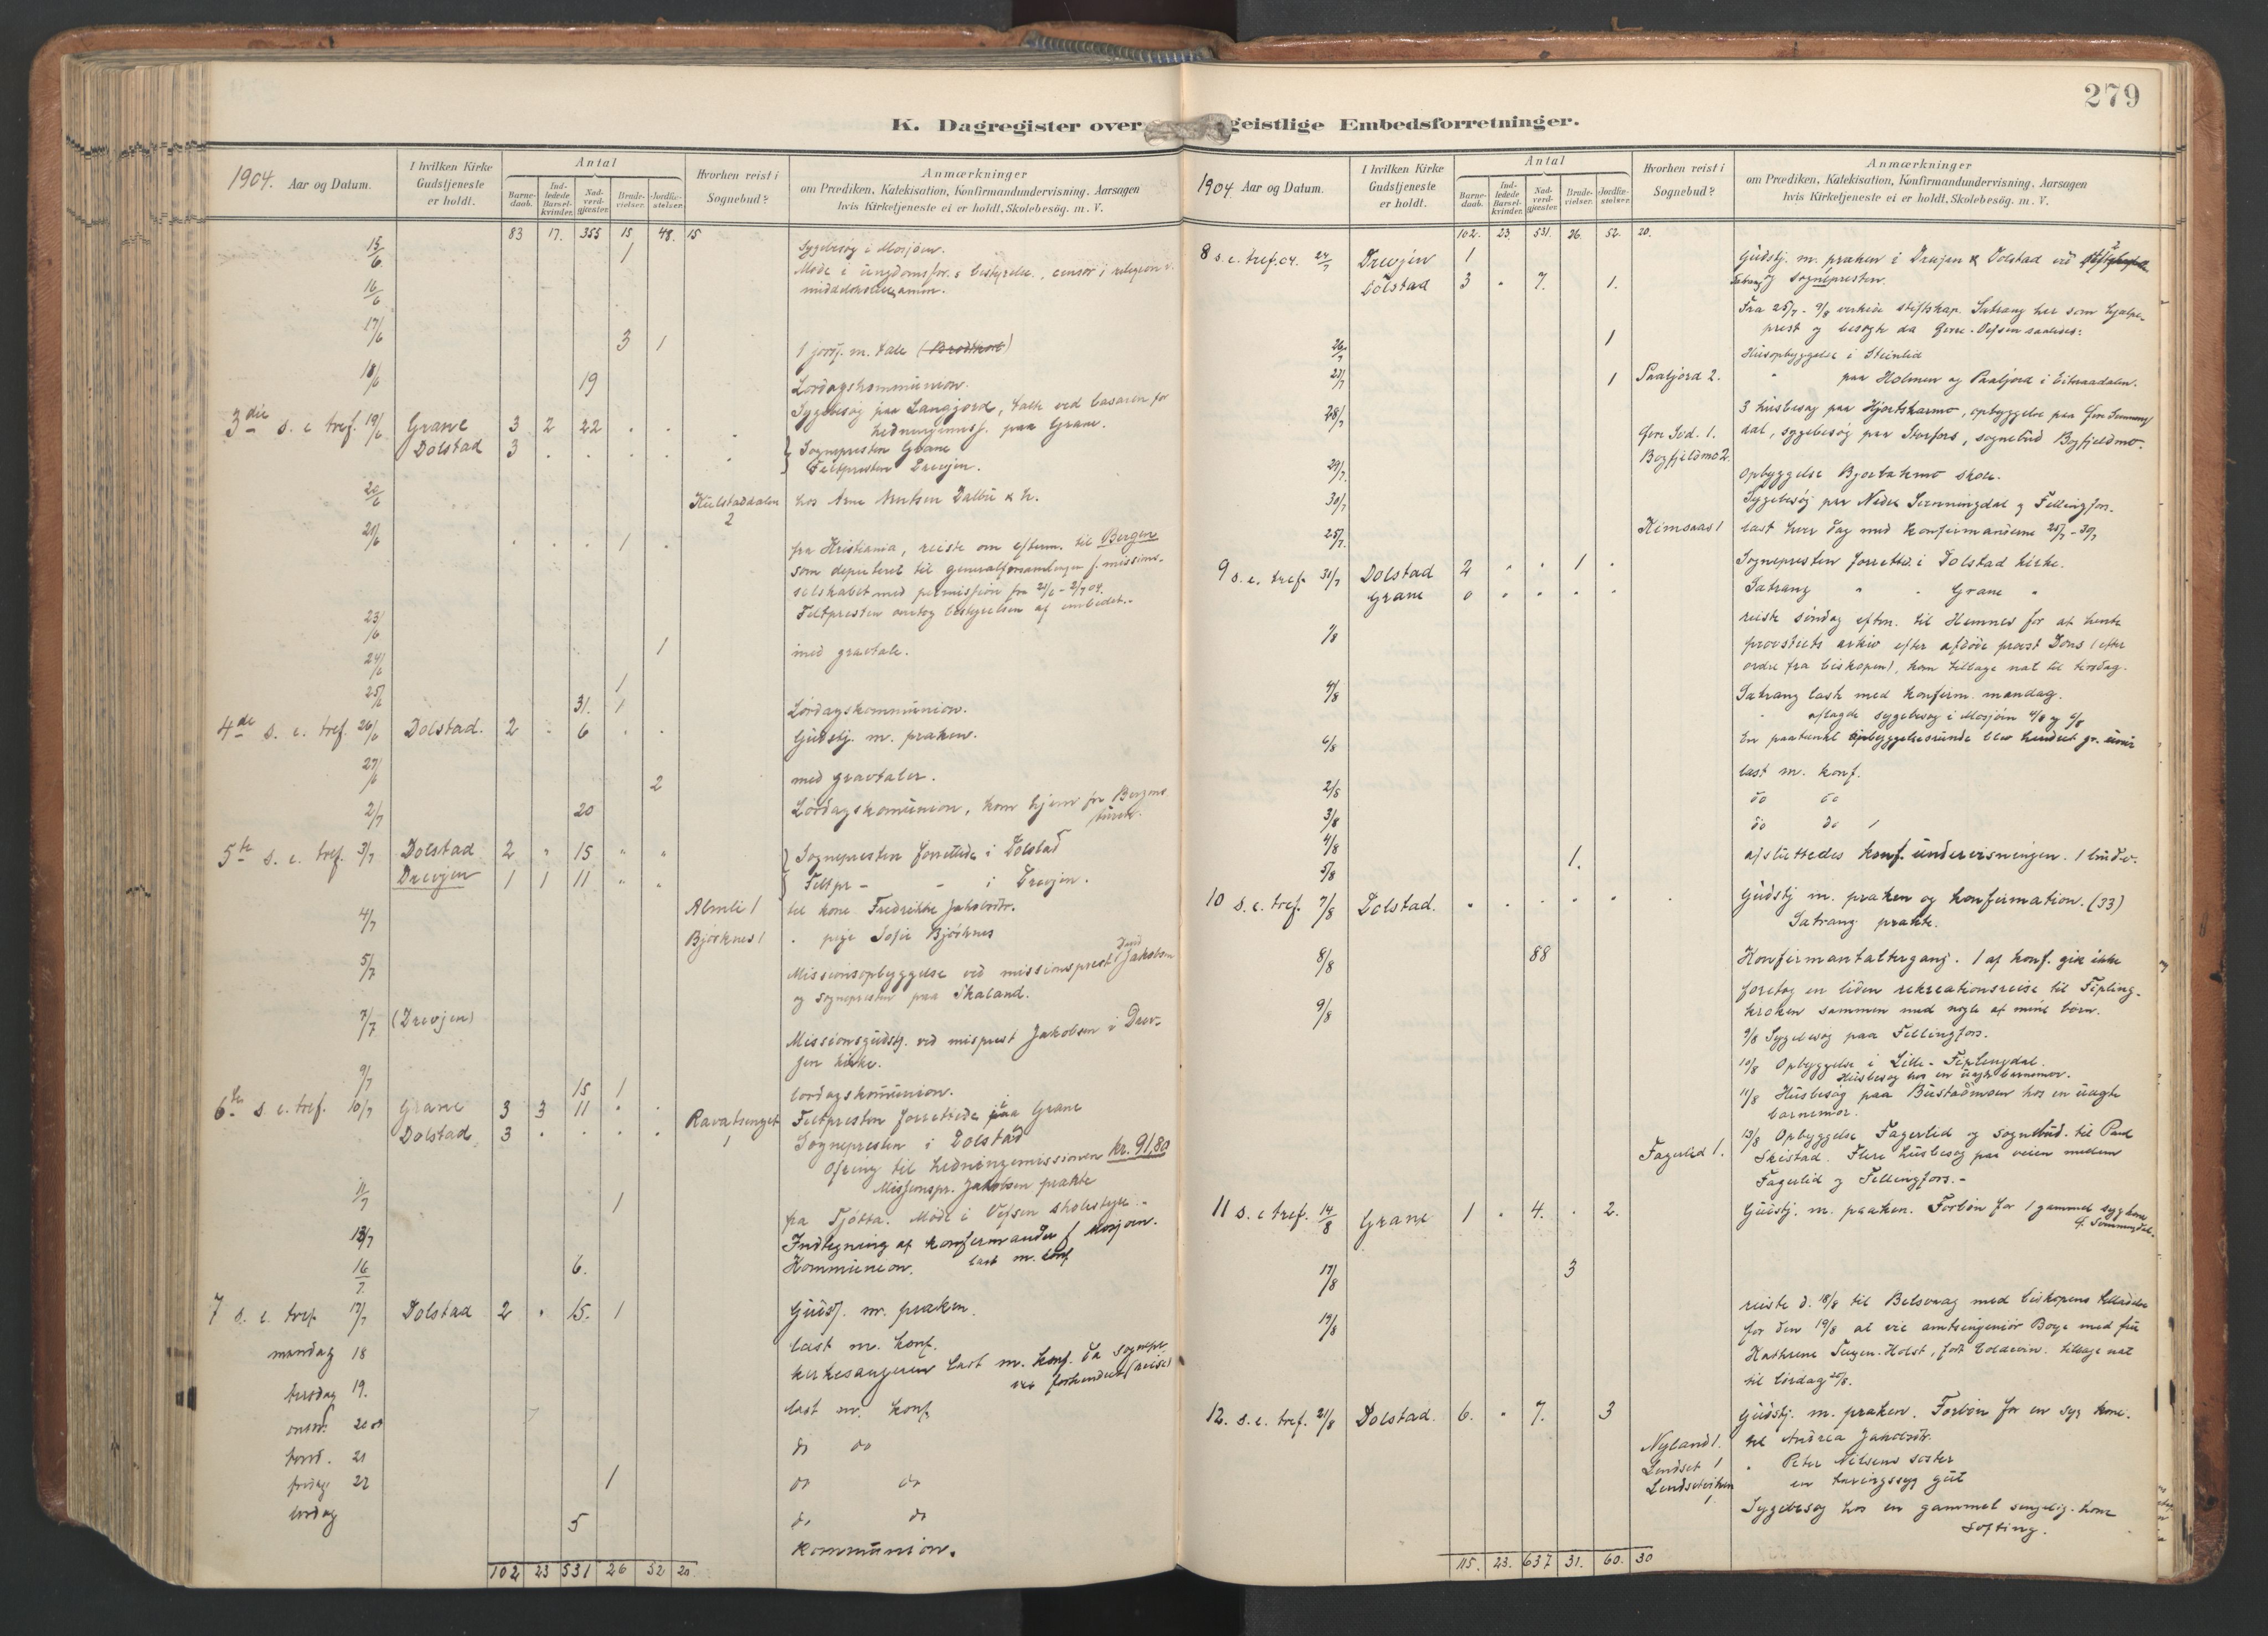 279
K. Dagregister over geistlige Embedsforretninger.
1904. Aar og Datum.
I hvilken Kirke Gudstjeneste er holdt.
Antal
Barne-daab.
Ind-ledede Barsel-kvinder.
Nad-verd-gjæster.
Brude-vielser.
Jordfæ-stelser.
Hvorhen reist i Sognebud?
Anmærkninger
om Prædiken, Katekisation, Konfirmandundervisning, Aarsagen
hvis Kirketjeneste ei er holdt, Skolebesög. m. V.
83 17. 355 15 48. 15
15/6 1 Sygebesög i Mosjöen.
Möde i ungdomsfor.s bestyrelse, censor i religion v.
16/6 middelskoleexamen.
17/6 3 1 1 jordf. m. tale
18/6 19 Lördagskommunion.
Sygebesög paa Langjord, talte ved basaren for
hedningemiss. paa Grane.
3die s. e. tref. 19/6 Grane 3 2 22 . . Sognepresten Grane
Dolstad 3 . . . . Feltpresten Drevjen.
20/6 Kulstaddalen 2 hos Arne Knutsen Dalbu & h.
21/6 1 fra Kristiania, reiste om efterm. til Bergen
som deputeret til generalforsamlingen f. missions-
selskabet med permission fra 21/6 - 2/7 04.
Feltpresten overtog bestyrelsen af embedet.
23/6 1 med gravtale.
24/6 1
25/6 31. 1 Lördagskommunion.
4de s. e. tref. 26/6 Dolstad. 2 - 6 . . Gudstj. m. præken.
27/6 2 med gravtaler.
2/7 20 Lördagskomunion, kom hjem fra Bergens
turen.
5te s. e. tref. 3/7 Dolstad 2 " 15 " " Sognepresten forrettede i Dolstad
Drevjen 1 1 11 " " Feltpr - - i Drevjen.
4/7 Almli 1 til kone Fredrikke Jakobsdtr.
Björknes 1 . pige Sofie Björknes
5/7 Missionsopbyggelse ved missionsprest Jakobsen
og sognepresten paa Skaland.
7/7 (Drevjen) Missionsgudstj. ved misprest Jakobsen i Drev-
jen kirke.
9/7 15 1 lördagskomunion.
6te s. e. tref. 10/7 Grane 3 3 11 . . Ravatsenget 1 Feltpresten forrettede paa Grane
Dolstad 3 . . . . Sognepresten i Dolstad
Ofring til hedningemissionen kr. 91,80
Missionspr. Jakobsen prækte
11/7 1 fra Tjötta. Möde i Vefsen skolestyre.-
13/7 Indtegning af konfirmander f Mosjöen.
16/7 6. Kommunion. læst m. konf.
7 s. e. tref 17/7 Dolstad 2 . 15. 1 Gudstj. m. præken.
mandag 18 læst m. konf.
tirsdag 19. kirkesangeren læst m. konf. da sognepr.
var forhindret (reise)
onsd. 20 læst m. konf.
torsd. 21 do do
fredag 22 1 do do
lördag 5 do do
Kommunion.
102 23 531 26 52 20
1904 Aar og Datum.
I hvilken Kirke Gudstjeneste er holdt.
Antal
Barne-daab.
Ind-ledede Barsel-kvinder.
Nad-verd-gjæster.
Brude-vielser.
Jordfæ-stelser.
Hvorhen reist i Sognebud?
Anmærkninger
om Prædiken, Katekisation, Konfirmandundervisning, Aarsagen
hvis Kirketjeneste ei er holdt, Skolebesög. m. V.
102. 23. 531. 26. 52. 20.
8 s. e. tref. 24/7 Drevjen 1 Gudstj. m. præken i Drevjen & Dolstad ved
Dolstad 3 . 7. 1. Satrang og sognepresten.
Fra 25/7 - 9/8 virkede stiftskap. Satrang her som hjælpe-
prest og besögte da Övre-Vefsen saaledes:
26/7 1 Husopbyggelse i Steinlid
27/7 1 Paaljord 2. " paa Holmen og Paaljord i Eiteraadalen.
28/7 3 husbesög paa Hjortskarmo, opbyggelse paa Övre Svenning
Övre Svd. 1. dal, sygebesög paa Storfors, sognebud Bogfjeldmo.
Bogfjeldmo 2.
29/7. Opbyggelse Bjortakmo skole.
30/7 Sygebesög paa Nedre Svenningdal og Fellingfors.
25/7. Kimsaas 1 læst hver dag med konfirmanderne 25/7 - 30/7
9 s. e. tref. 31/7 Dolstad 2 " " 1 . Sognepresten forrettede i Dolstad kirke.
Grane 0 . . . . Satrang " " Grane "
1/8 reiste söndag eftm. til Hemnes for at hente
provstiets arkiv efter afdöde provst Dons (efter
ordre fra biskopen), kom tilbage nat til tirsdag.
4/8 Satrang læste med konfirm. mandag.
" aflagde sygebesög i Mosjöen 4/8 og 6/8
6/8 En paatænkt opbyggelsesrunde blev hindret
læst m. konf.
2/8 do do
3/8 do do
4/8 1. afsluttedes konf. undervisningen.
5/8
10 s. e. tref. 7/8 Dolstad. . . . . . . Gudstj m. præken og konfirmation. (33)
Satrang prækte.
8/8 88 Konfirmantaltergang. 1 af konf. gik ikke
9/8 foretog en liden rekreationsreise til Fipling-
kroken sammen med nogle af mine börn.
9/8 Sygebesög paa Fellingfors.
10/8 Opbyggelse i Lille-Fiplingdal.
Husbesög hos en ugift barnemor.
11/8 Husbesög paa Bustadmoen hos en uægte
barnemor.
Fagerlid 1. 13/8 Opbyggelse Fagerlid og sognebud. til Paul
Skistad. Flere husbesög paa veien mellem
Fagerlid og Fellingfors.-
11 s. e tref. 14/8 Grane 1 . 4. . 2. Gudstj. m. præken. Forbön for 1 gammel syg kone
17/8 3
19/8 reiste d. 18/8 til Belsvaag med biskopens tilladelse
for den 19/8 at vie amtsingeniör Boye med frue
Kathrine Jürgen. Holst, född Coldevin. tilbage nat
til lördag 20/8.
12. s. e. tref. 21/8 Dolstad. 6. . 7. 3 Gudstj. m. præken. Forbön for en syg kone.
Nyland 1. til Andrea Jakobsdtr.
Lindset 1 " Peter Nilsens söster
en tæringssyg gut
Sygebesög hos en gammel sengelig. kone
Söfting.
115. 23. 637 31. 60. 30